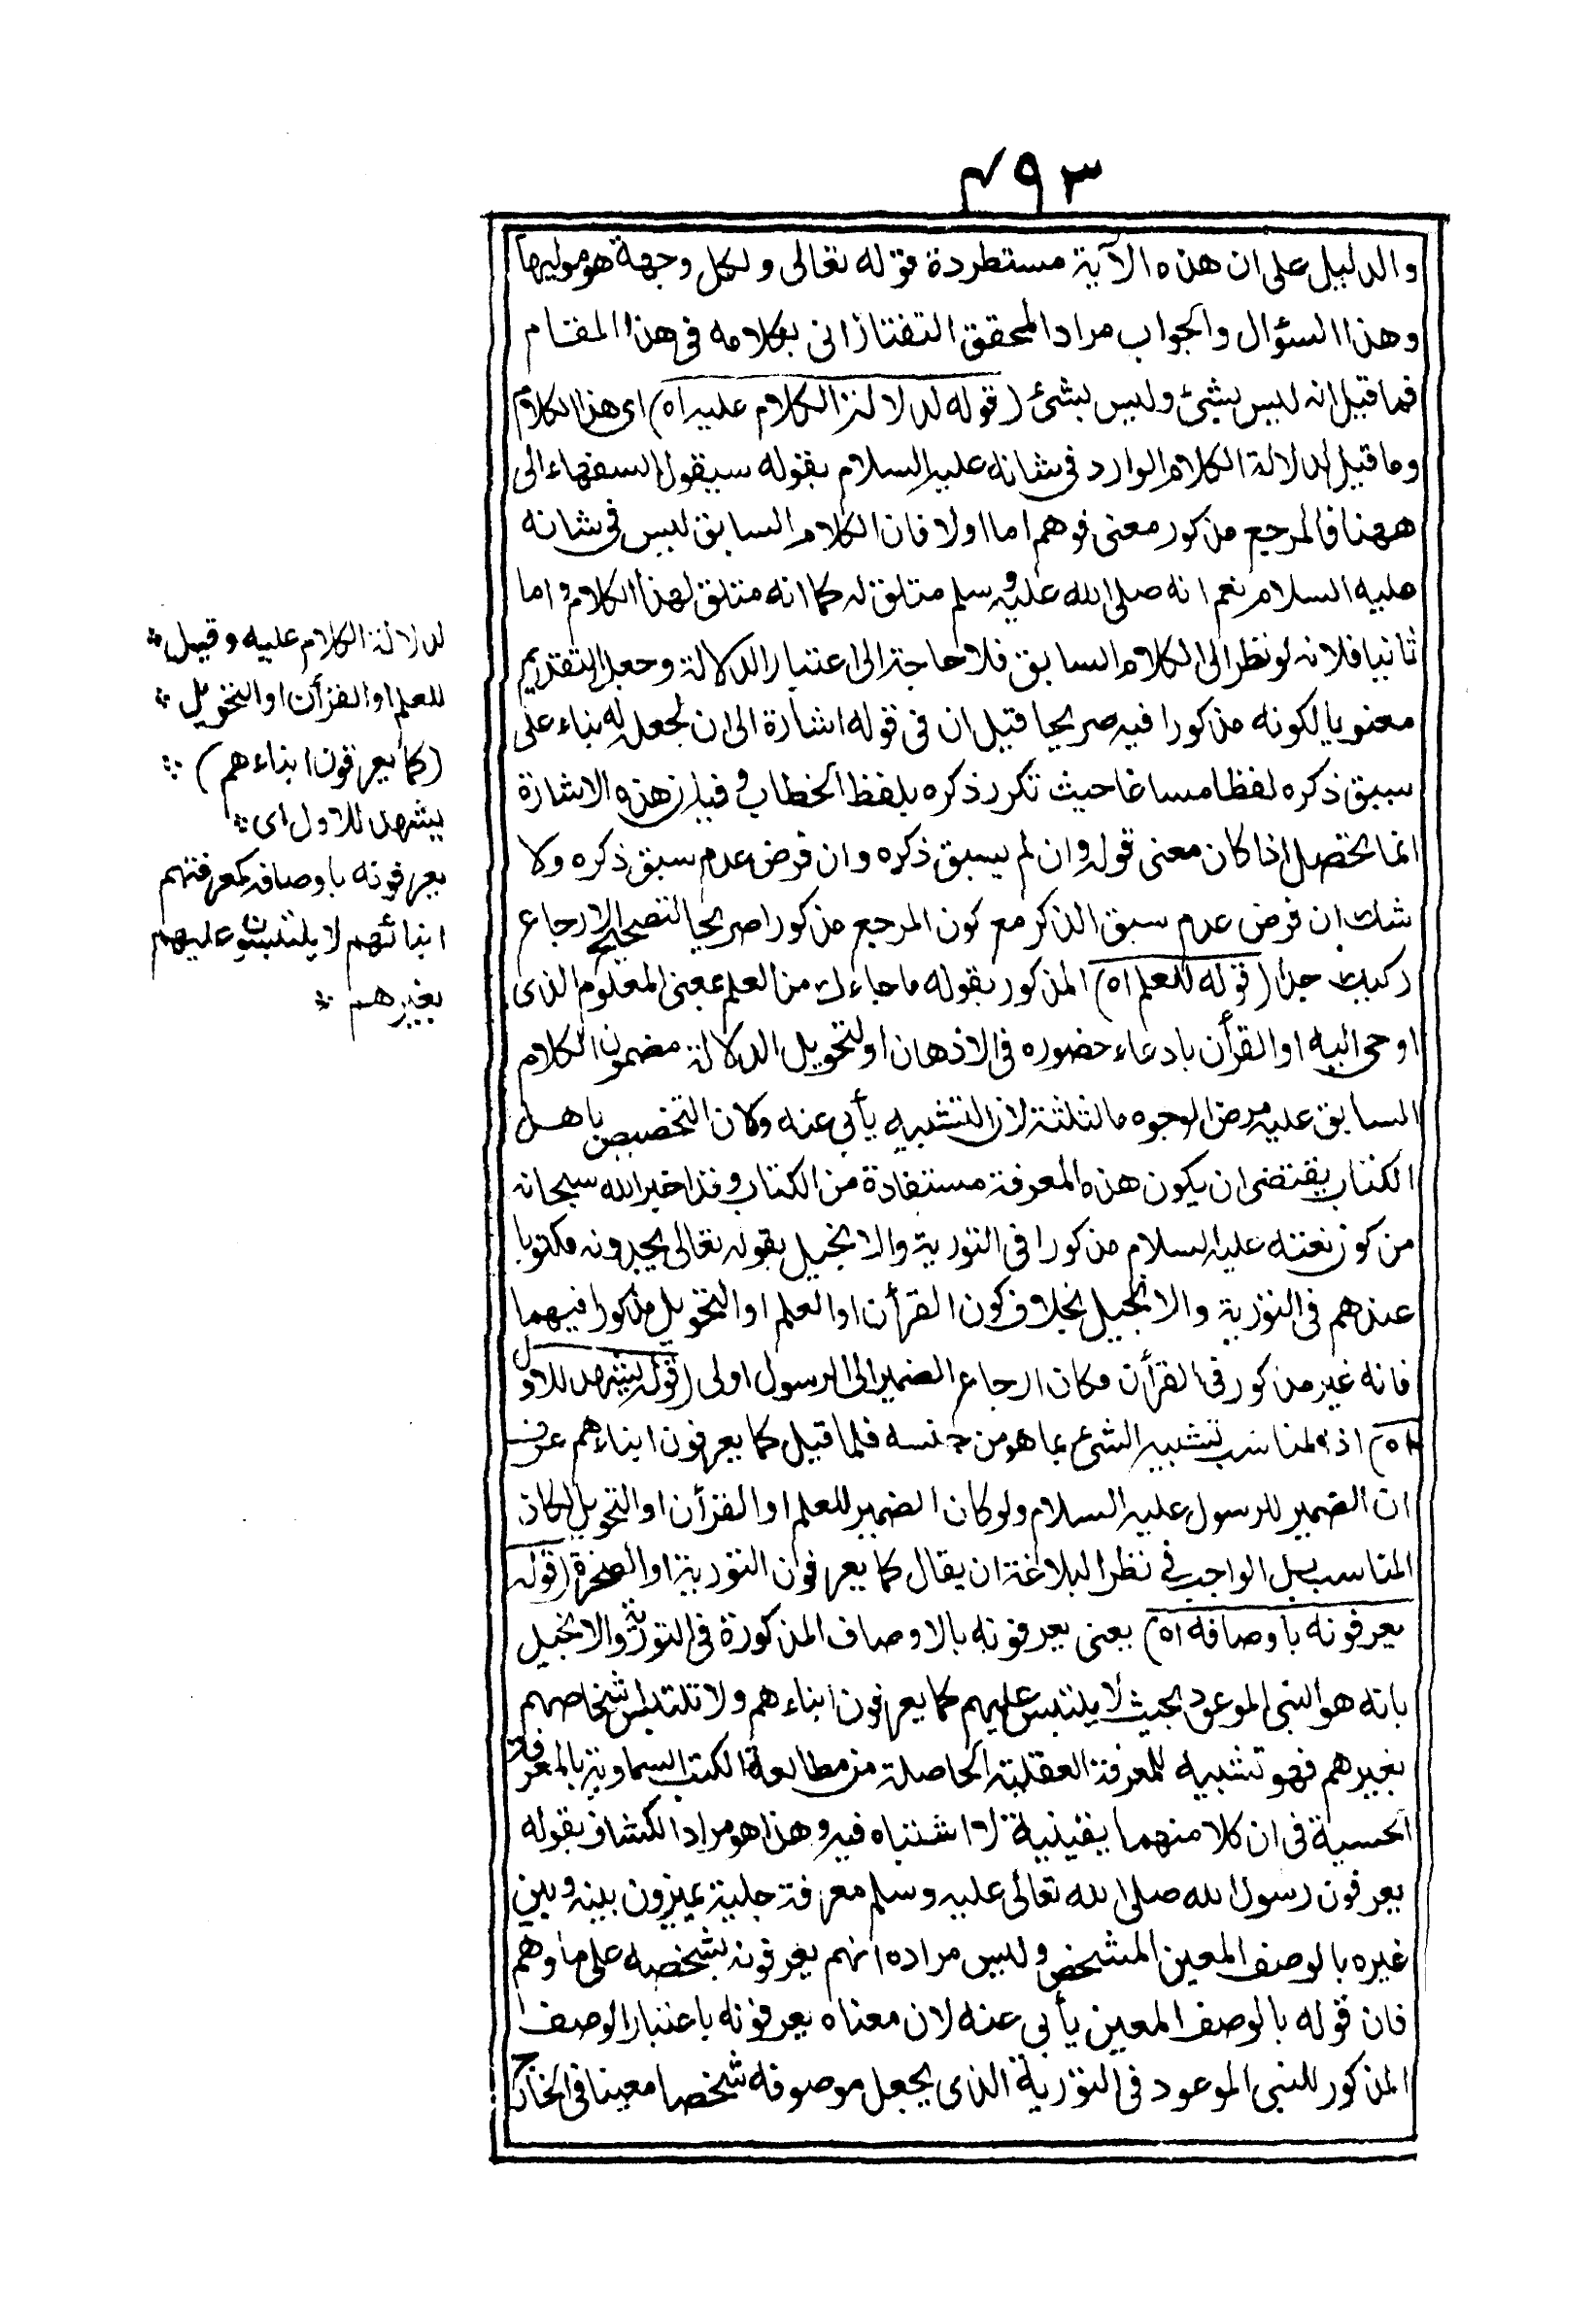 ٤٩٣
والدليل على ان هذه الآية مستطردة قوله تعالى ولكل وجهة هو موليها
وهذا السؤال والجواب مراد المحقق التفتازانى بكلامه فى هذا المقام
فما قيل انه ليس بشئ وليس بشئ (قوله لدلالة الكلام عليه اه) اى هذا الكلام
وما قيل لدلالة الكلام الوارد فى شانه عليه السلام بقوله سيقول السفهاء الى
ههنا فالمرجع مذكور معنى فوهم اما اولا فان الكلام السابق ليس فى شانه
عليه السلام نعم انه صلى الله عليه وسلم متلق له كما انه متلق لهذا الكلام واما
ثانيا فلانه لو نظر الى الكلام السابق فلا حاجة الى اعتبار الدلالة وجعل التقديم
معنويا لكونه مذكورا فيه صريحا قيل ان فى قوله اشارة الى ان لجعل له بناء على
سبق ذكره لفظا مساغا حيث تكرر ذكره بلفظ الخطاب وفيه ان هذه الاشارة
انما تحصل اذا كان معنى قوله وان لم يسبق ذكره وان فرض عدم سبق ذكره ولا
شك ان فرض عدم سبق الذكر مع كون المرجع مذكورا صريحا لتصحيح الارجاع
ركيك جدا (قوله للعلم اه) المذكور بقوله ما جاءك من العلم بمعنى المعلوم الذى
اوحى اليه او القرأن بادعاء حضوره فى الاذهان او لتحويل الدلالة مضمون الكلام
السابق عليه مرض الوجوه الثلثة لان التشبيه يأبى عنه وكان التخصيص باهل
الكتاب يقتضى ان يكون هذه المعرفة مستفادة من الكتاب وقد اخبر الله سبحانه
من كون نعته عليه السلام مذكورا فى التورية والانجيل بقوله تعالى يجدونه مكتوبا
عندهم فى التورية والانجيل بخلاف كون القرأن او العلم او التحويل مذكورا فيهما
فانه غير مذكور فى القرأن فكان ارجاع الضمير الى الرسول اولى (قوله يشهد للاول
اه) اذ المناسب تشبيه الشئ بما هو من جنسه فلما قيل كما يعرفون ابناءهم عرف
ان الضمير للرسول عليه السلام ولو كان الضمير للعلم او القرأن او التحويل لكان
المناسب بل الواجب فى نظر البلاغة ان يقال كما يعرفون التورية او الصخرة (قوله
يعرفونه باوصافه اه) يعنى يعرفونه بالاوصاف المذكورة فى التورية والانجيل
بانه هو النبى الموعود بحيث لا يلتبس عليهم كما يعرفون ابناءهم ولا تلتبس اشخاصهم
بغيرهم فهو تشبيه للمعرفة العقلية الحاصلة من مطالعة الكتب السماوية بالمعرفة
الحسية فى ان كلا منهما يقينية لا اشتباه فيه وهذا هو مراد الكشاف بقوله
يعرفون رسول الله صلى الله تعالى عليه وسلم معرفة جلية يميزون بينه وبين
غيره بالوصف المعين المشخص وليس مراده انهم يعرفونه بشخصه على ما وهم
فان قوله بالوصف المعين يأبى عنه لان معناه يعرفونه باعتبار الوصف
المذكور للنبى الموعود فى التورية الذى يجعل موصوفه شخصا معينا فى الخارج
لدلالة الكلام عليه وقيل
للعلم او القرأن او التحويل
(كما يعرفون ابناءهم)
يشهد للاول اى
يعرفونه باوصافه كمعرفتهم
ابنائهم لا يلتبسون عليهم
بغيرهم